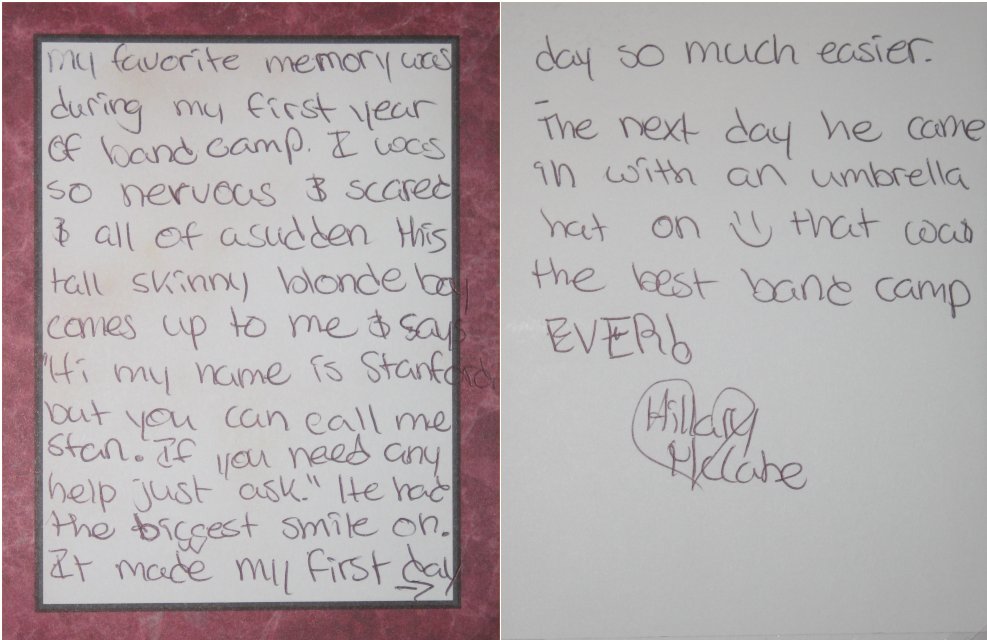 my favorite memory was
during my first year
of band camp. I was
so nervous & scared
& all of asudden this
tall skinny blonde boy
comes up to me & says
"Hi my name is Stanford
but you can call me
Stan. If you need any
help just "ask." He had
the biggest smile on.
It made my first day
→
day so much easier.
The next day he came
in with an umbrella
hat on :) that was
the best band camp
EVER!
Hillary
McCabe